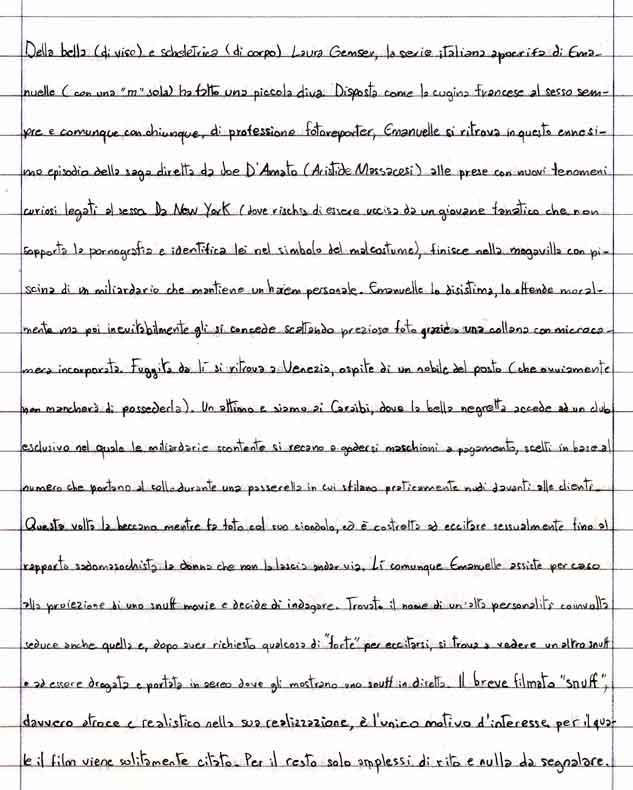 Della bella (di viso) e scheletrica (di corpo) Laura Gemser, la serie italiana apocrifa di Ema-
nuelle (con una "m" sola) ha fatto una piccola diva. Disposta come la cugina francese al sesso sem-
pre e comunque con chiunque, di professione fotoreporter, Emanuelle si ritrova in questo ennesi-
mo episodio della saga diretta da Joe D'Amato (Aristide Massacesi) alle prese con nuovi fenomeni
curiosi legati al sesso. Da New York (dove rischia di essere uccisa da un giovane fanatico che non
sopporta la pornografia e identifica lei nel simbolo del malcostume), finisce nella megavilla con pi-
scina di un miliardario che mantiene un harem personale. Emanuelle lo disistima, lo offende moral-
mente ma poi inevitabilmente gli si concede scattando preziose foto grazie a una collana con microca-
mera incorporata. Fuggita da lì si ritrova a Venezia, ospite di un nobile del posto (che ovviamente
non mancherà di possederla). Un attimo e siamo ai Caraibi, dove la bella negretta accede ad un club
esclusivo nel quale le miliardarie scontente si recano a godersi maschioni a pagamento, scelti in base al
numero che portano al collo durante una passerella in cui sfilano praticamente nudi davanti alle clienti.
Questa volta la beccano mentre fa foto col suo ciondolo, ed è costretta ad eccitare sessualmente fino al
rapporto sadomasochista la donna che non la lascia andar via. Lì comunque Emanuelle assiste per caso
alla proiezione di uno snuff movie e decide di indagare. Trovato il nome di un'alta personalità coinvolta
seduce anche quella e, dopo aver richiesto qualcosa di "forte" per eccitarsi, si trova a vedere un altro snuff
e ad essere drogata e portata in aereo dove gli mostrano uno snuff in diretta. Il breve filmato "snuff",
davvero atroce e realistico nella sua realizzazione, è l'unico motivo d'interesse per il qua-
le il film viene solitamente citato. Per il resto solo amplessi di rito e nulla da segnalare.